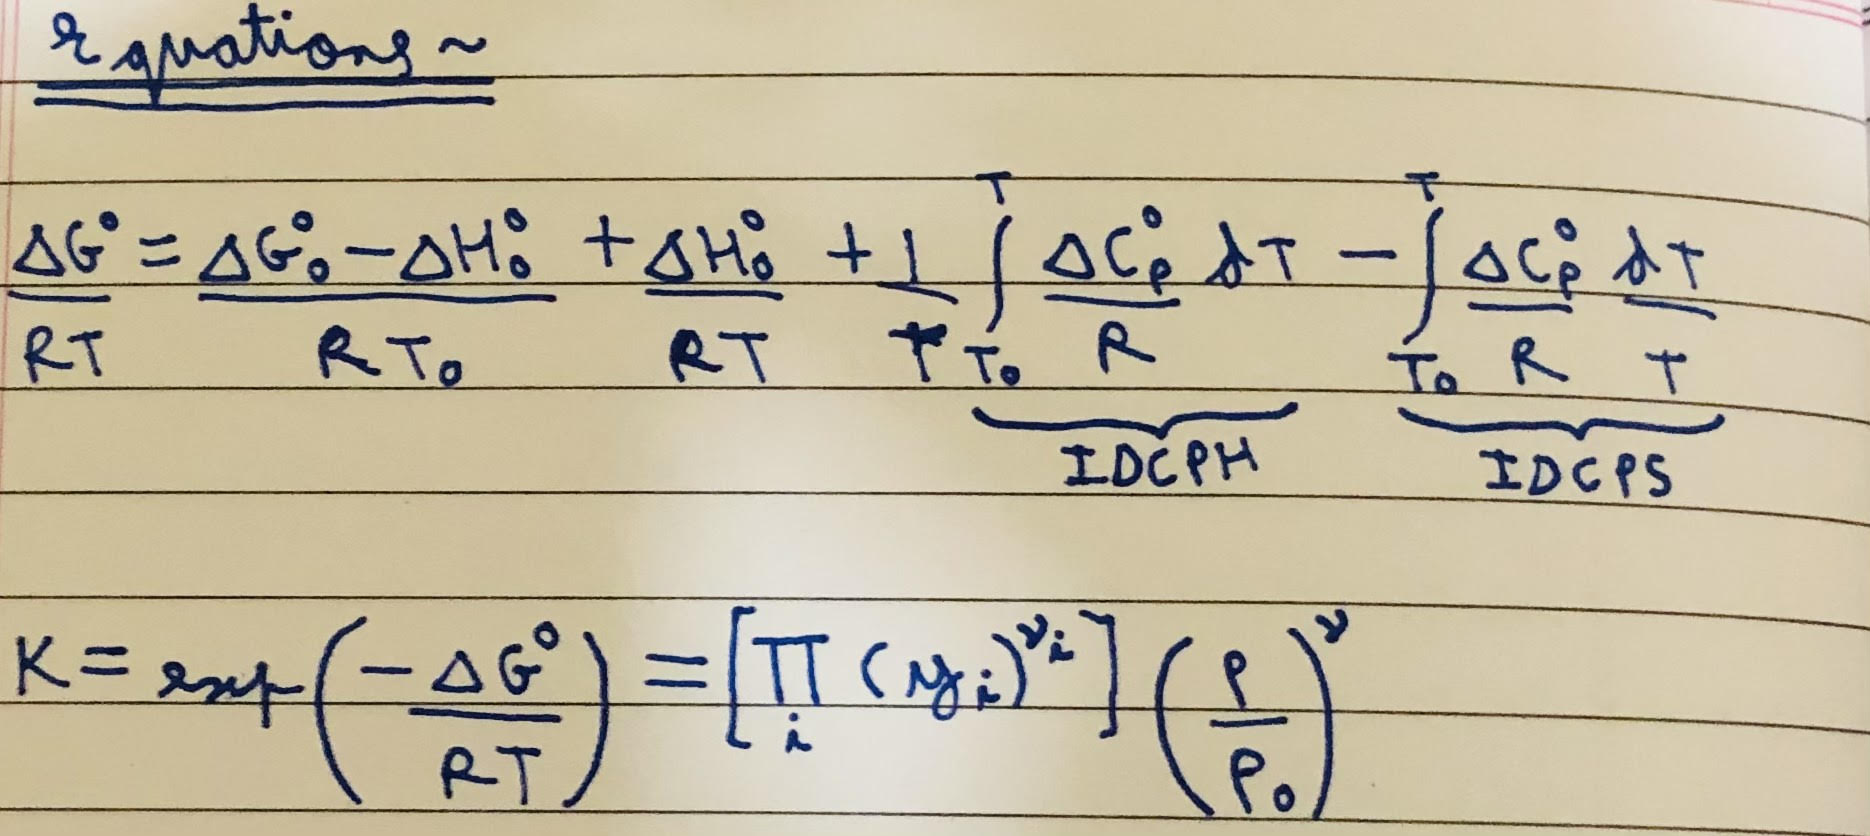 Equations ~
ΔG°/RT = (ΔG°₀ − ΔH°₀)/RT₀ + ΔH°₀/RT + 1/T ∫_{T₀}^{T} ΔC°ₚ/R dT − ∫_{T₀}^{T} ΔC°ₚ/R dT/T
IDCPH IDCPS
K = exp(−ΔG°/RT) = [∏_i (y_i)^{ν_i}] (P/P₀)^ν